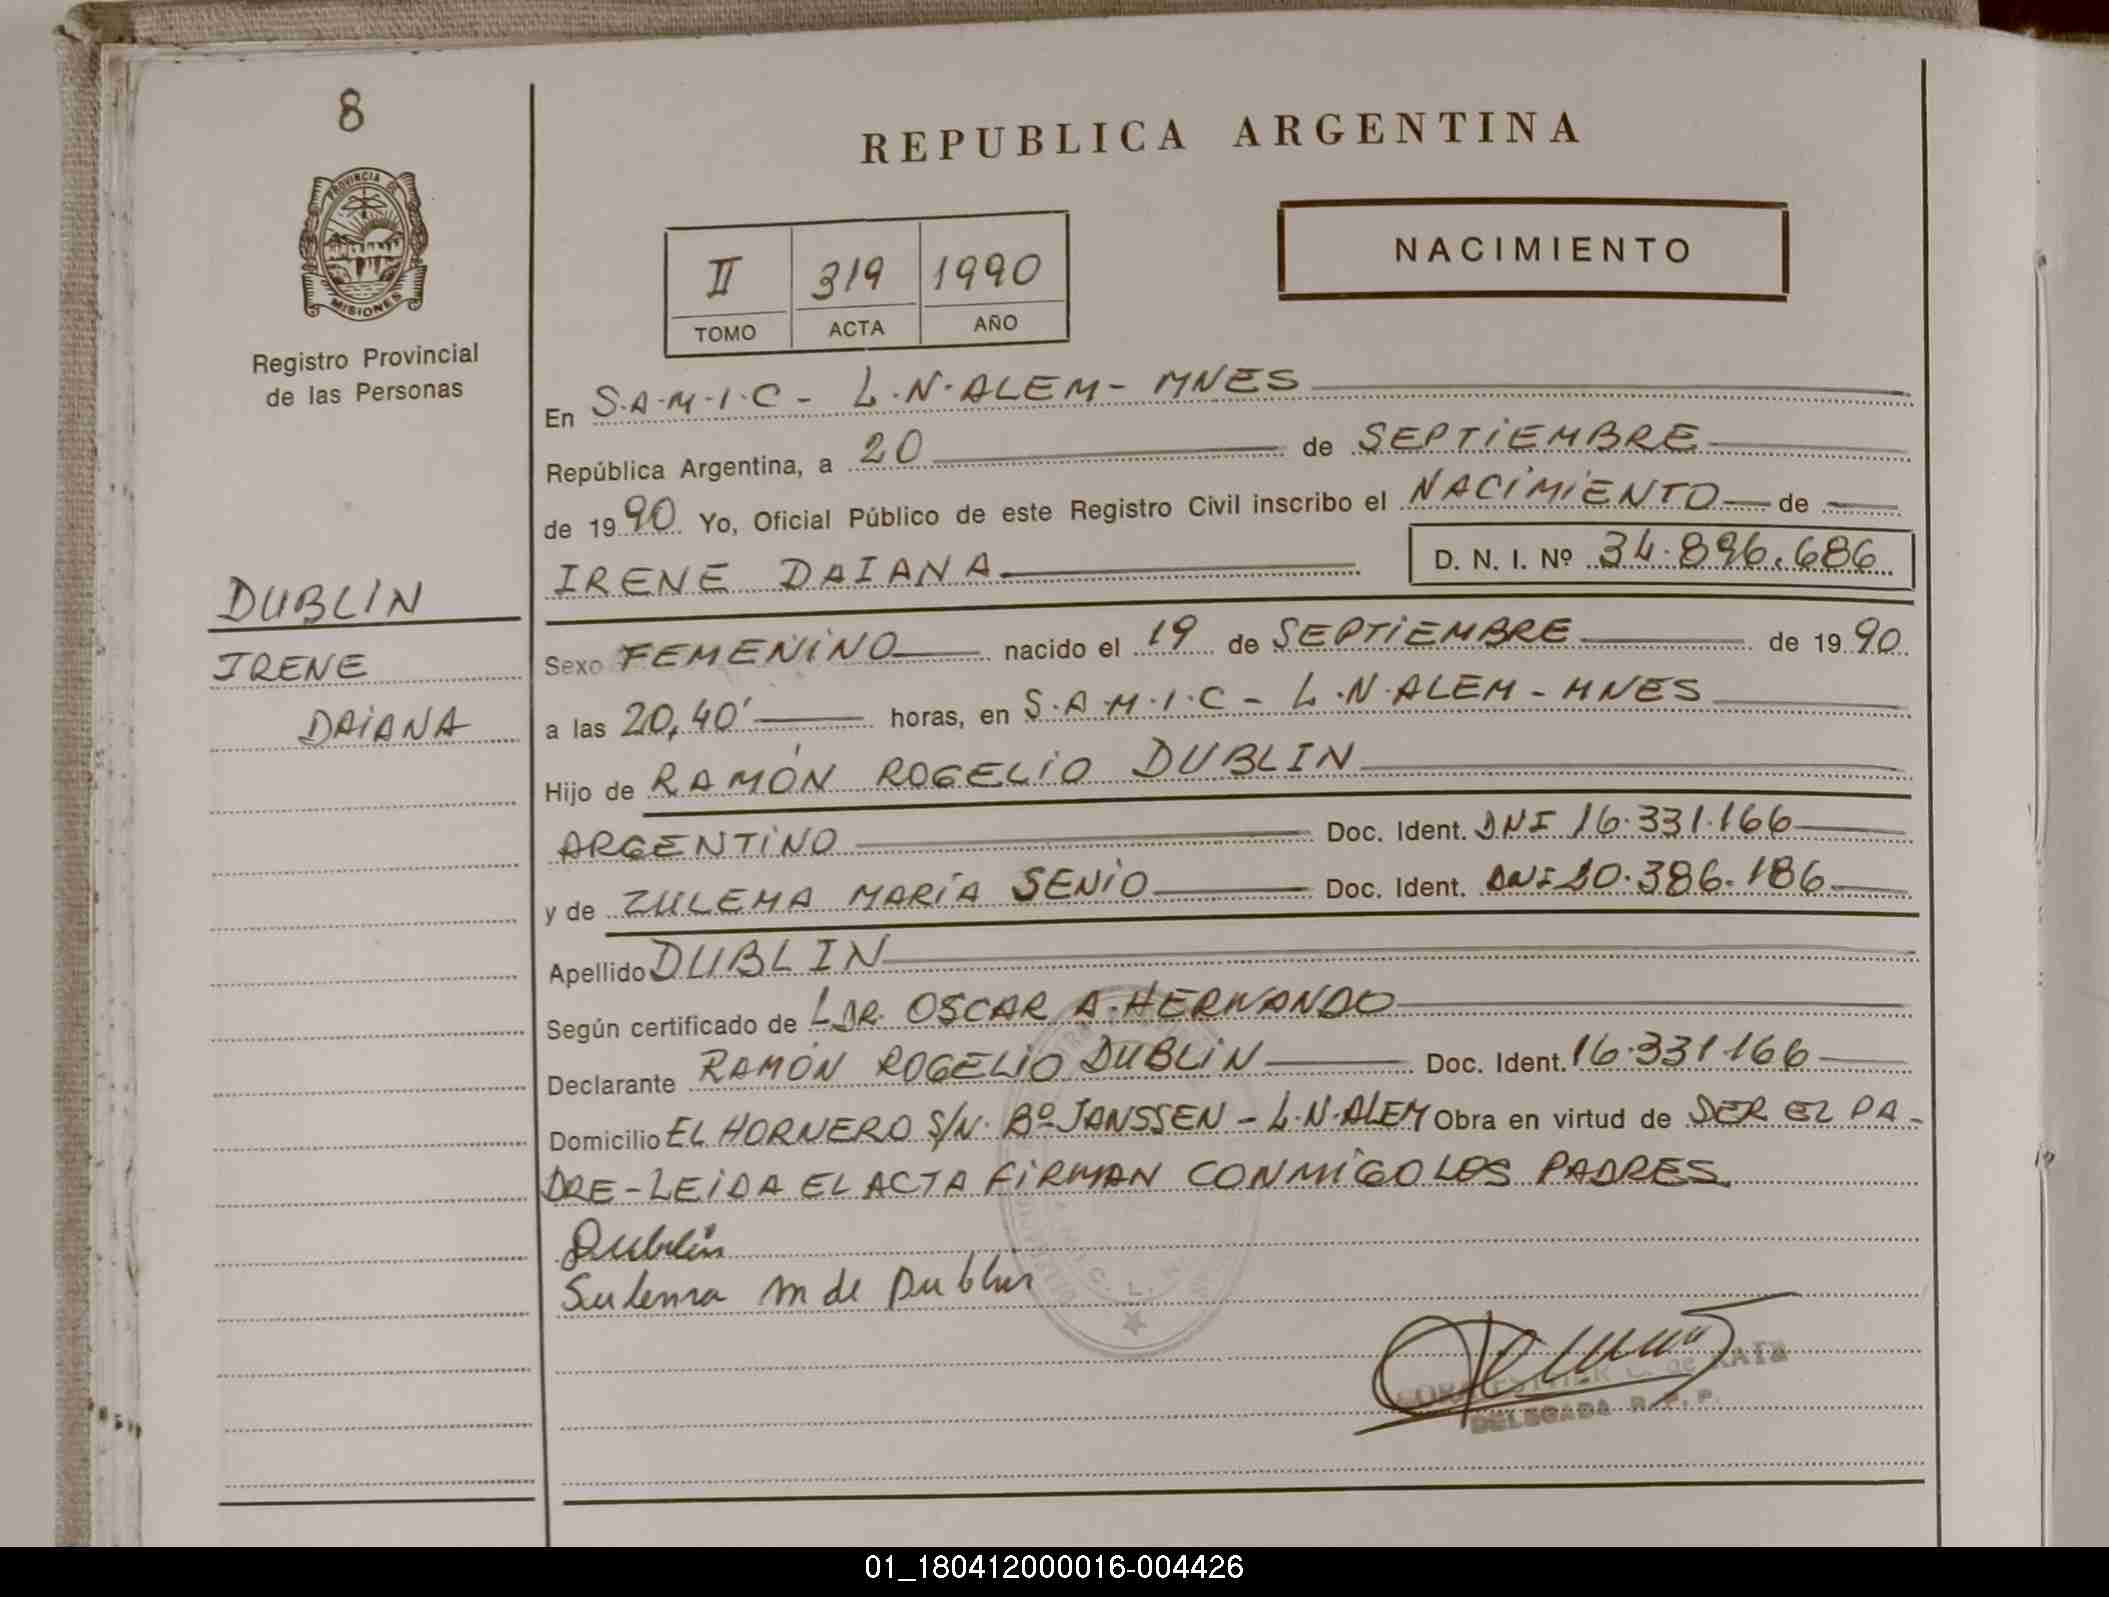 8
REPUBLICA ARGENTINA
PROVINCIA DE
MISIONES
Registro Provincial
de las Personas
NACIMIENTO
II 319 1990
TOMO ACTA AÑO
En S.A.M.I.C - L.N.ALEM - MNES
República Argentina, a 20 de SEPTIEMBRE
de 1990. Yo, Oficial Público de este Registro Civil inscribo el NACIMIENTO de
IRENE DAIANA D. N. I. Nº 34.896.686
DUBLIN
IRENE
DAIANA
Sexo FEMENINO nacido el 19 de SEPTIEMBRE de 1990.
a las 20,40' horas, en S.A.M.I.C - L.N.ALEM - MNES
Hijo de RAMÓN ROGELIO DUBLIN
ARGENTINO Doc. Ident. DNI 16.331.166
y de ZULEMA MARÍA SENIO Doc. Ident. DNI 20.386.186
Apellido DUBLIN
Según certificado de DR. OSCAR A. HERNANDO
Declarante RAMÓN ROGELIO DUBLIN Doc. Ident. 16.331.166
Domicilio EL HORNERO S/N. Bº JANSSEN - L.N.ALEM Obra en virtud de SER EL PA-
DRE - LEIDA EL ACTA FIRMAN CONMIGO LOS PADRES.
Dublin
Sulema M de Dublin
DELEGADA R. P. P.
01_180412000016-004426